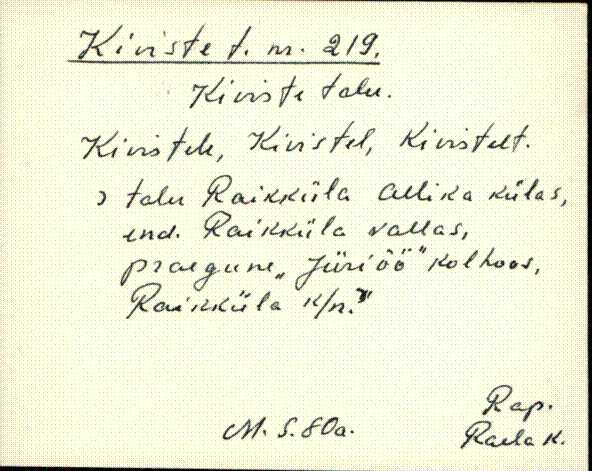 Kiviste t. nr. 219.
Kiviste talu.
Kivistele, Kivistel, Kivistelt.
talu Raikküla Allika külas,
end. Raikküla vallas,
praegune „Jüriöö" kolhoos,
Raikküla k/n."
M. S. 80a.
Rap.
Raela K.